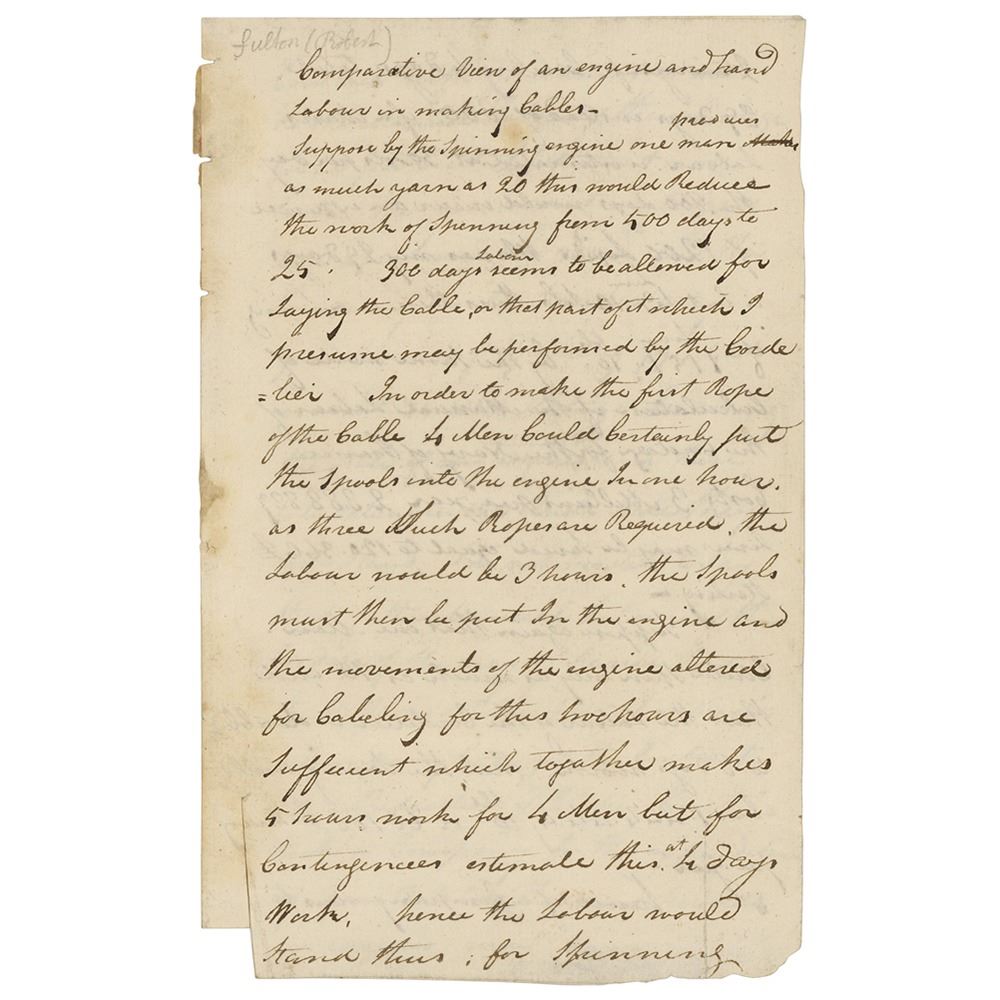 Fulton (Robert)
Comparative View of an engine and hand
Labour in making Cables-
produces
Suppose by the Spinning engine one man Makes
as much yarn as 20 this would Reduce
the work of Spinning from 500 days to
Labour
25. 300 days seems to be allowed for
Laying the Cable, or that part of it which I
presume may be performed by the Corde
=lier In order to make the first Rope
of the Cable 4 Men Could Certainly put
the Spools into the engine In one hour.
as three Such Ropes are Required, the
Labour would be 3 hours. the Spools
must then be put In the engine and
the movements of the engine altered
for Cabeling for this two hours are
Sufficient which togather makes
5 hours work for 4 Men but for
at
Contingences estemate this 4 days
Work, hence the Labour would
Stand thus; for Spinning